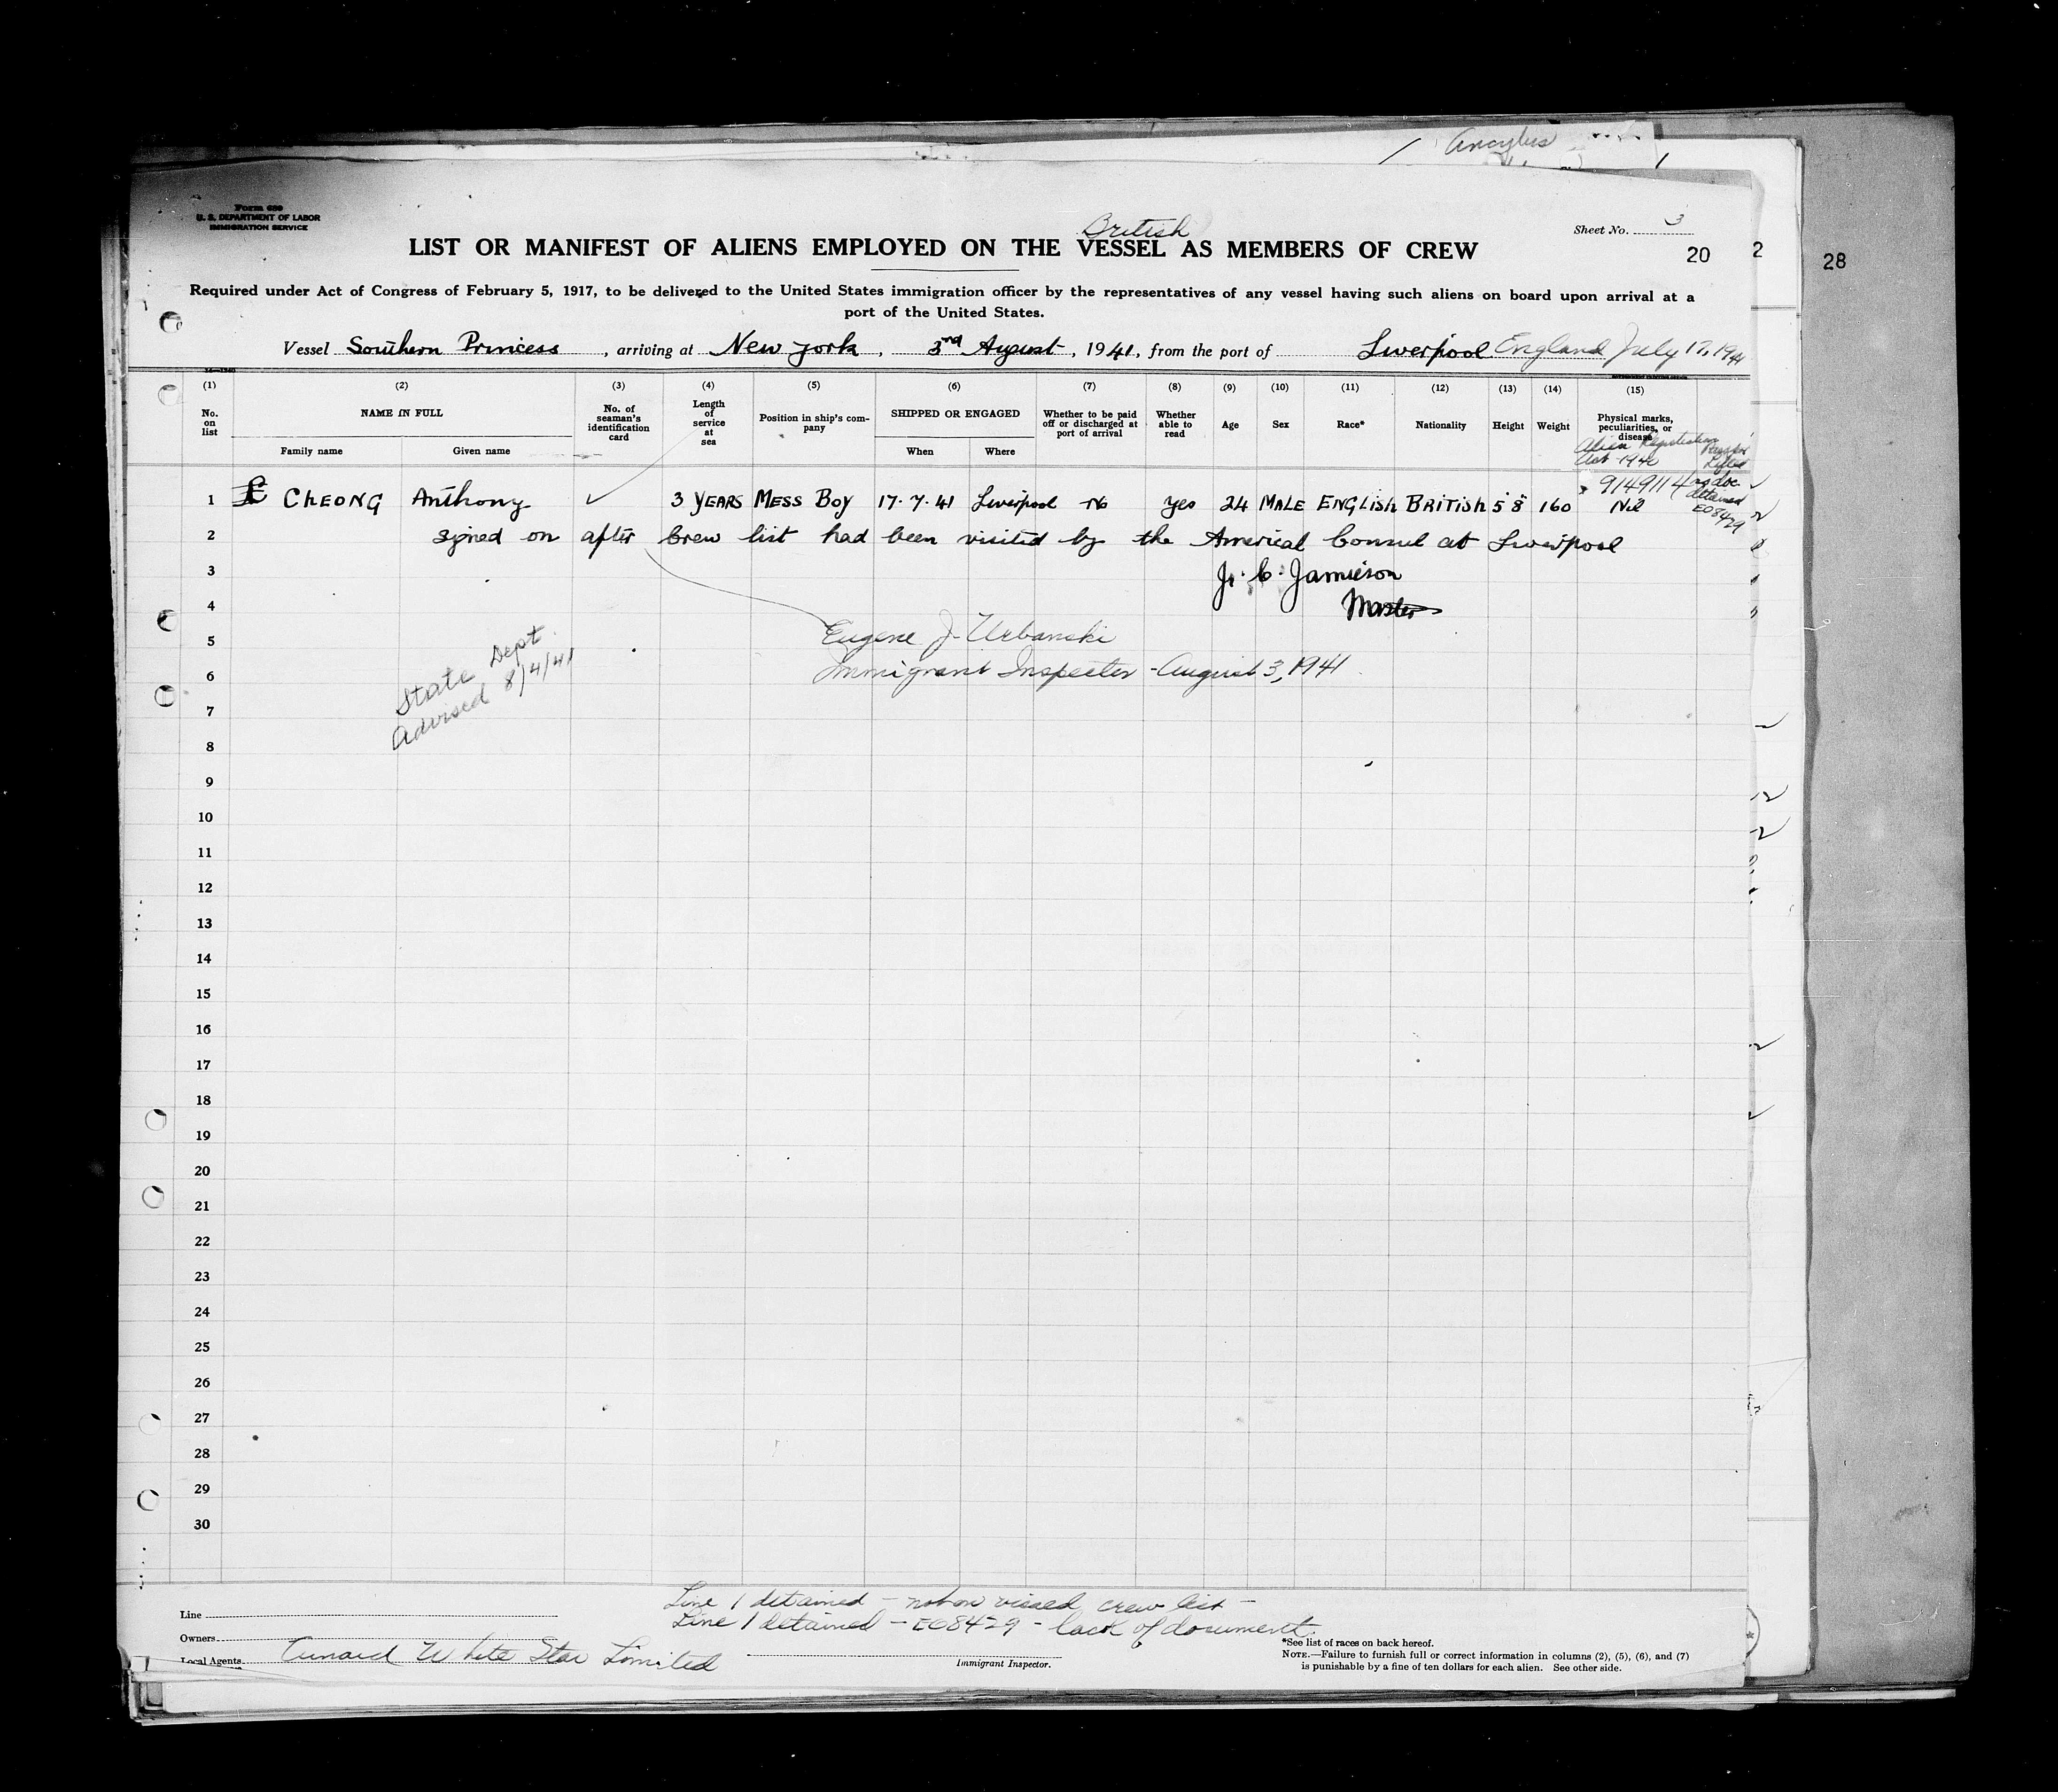 Ancylus
Form 680
U. S. DEPARTMENT OF LABOR
IMMIGRATION SERVICE
British
Sheet No. 3
LIST OR MANIFEST OF ALIENS EMPLOYED ON THE VESSEL AS MEMBERS OF CREW
20 2 28
Required under Act of Congress of February 5, 1917, to be delivered to the United States immigration officer by the representatives of any vessel having such aliens on board upon arrival at a
port of the United States.
Vessel Southern Princess, arriving at New York, 3nd August, 1941, from the port of Liverpool England July 17, 1941
(1) (2) (3) (4) (5) (6) (7) (8) (9) (10) (11) (12) (13) (14) (15)
No. on list NAME IN FULL No. of seaman's identification card Length of service at sea Position in ship's company SHIPPED OR ENGAGED Whether to be paid off or discharged at port of arrival Whether able to read Age Sex Race* Nationality Height Weight Physical marks, peculiarities, or disease
Family name Given name When Where
Alien Registration
Act 1940
9149114 no doc
detained
E08429
1 £ CHEONG Anthony 3 YEARS MESS BOY 17.7.41 Liverpool No Yes 24 MALE ENGLISH BRITISH 5'8" 160 Nil
2 signed on after Crew list had been visited by the Americal Consul at Liverpool
3 Jr. C. Jamieson
4 Master
5 Eugene J. Urbanski
6 Immigrant Inspector - August 3, 1941
State Dept
Advised 8/4/41
7
8
9
10
11
12
13
14
15
16
17
18
19
20
21
22
23
24
25
26
27
28
29
30
Line 1 detained - not on visaed crew list -
Line 1 detained - E08429 - lack of document
Line
Owners
Local Agents Cunard White Star Limited
Immigrant Inspector.
*See list of races on back hereof.
NOTE.—Failure to furnish full or correct information in columns (2), (5), (6), and (7)
is punishable by a fine of ten dollars for each alien. See other side.